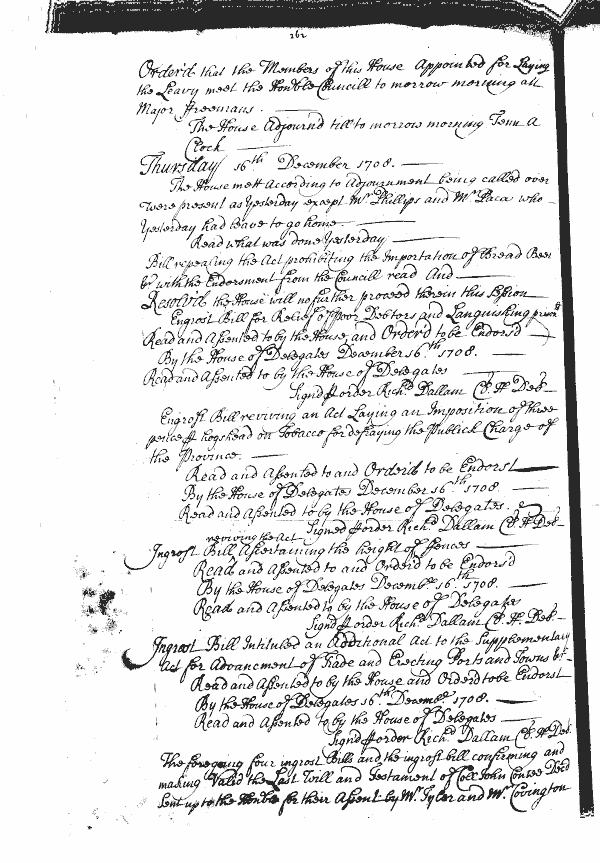 262
Orderd that the Members of this House Appointed for Laying
the Leavy meet the Honble Councill to morrow morning att
Major Freemans.
The House Adjournd till to morrow morning Tenn A
Clock
Thursday 16th December 1708.
The House mett According to Adjournment being called over
were present as Yesterday except Mr Phillips and Mr Paca who
Yesterday had leave to go home.
Read what was done Yesterday
Bill repealing the Act prohibiting the Importation of Bread Beer
&c with the Endorsment from the Councill read And
Resolvd the House will no further proceed therein this Session
Engrost Bill for Relief of Poor Debtors and Languishing prisrs
Read and Assented to by the House, and Orderd to be Endorsd
By the House of Delegates December 16th 1708.
Read and Assented to by the House of Delegates
Signd p order Richd Dallam Cl. H Del.
Engrost Bill reviving an Act Laying an Imposition of three
pence p hogshead on Tobacco for defraying the Publick Charge of
the Province.
Read and Assented to and Orderd to be Endorst
By the House of Delegates December 16th 1708.
Read and Assented to by the House of Delegates.
Signed p order Richd Dallam Cl. H Del.
reviving the Act
Ingrost Bill Assertaining the height of Fences
Read and Assented to and Orderd to be Endorsd
By the House of Delegates Decembr 16th 1708.
Read and Assented to by the House of Delegates
Signd p order Richd Dallam Cl. H Del.
Ingrost Bill Intituled an Additional Act to the Supplementary
Act for Advancment of Trade and Erecting Ports and Towns &c
Read and Assented to by the House and Orderd to be Endorst
By the House of Delegates 16th Decembr 1708.
Read and Assented to by the House of Delegates
Signd p order Richd Dallam Cl. H Del.
The foregoing four ingrost Bills and the ingrost bill confirming and
making Valid the Last Will and Testament of Coll John Contee Decd
Sent up to the Honble for their Assent by Mr Tyler and Mr Covington